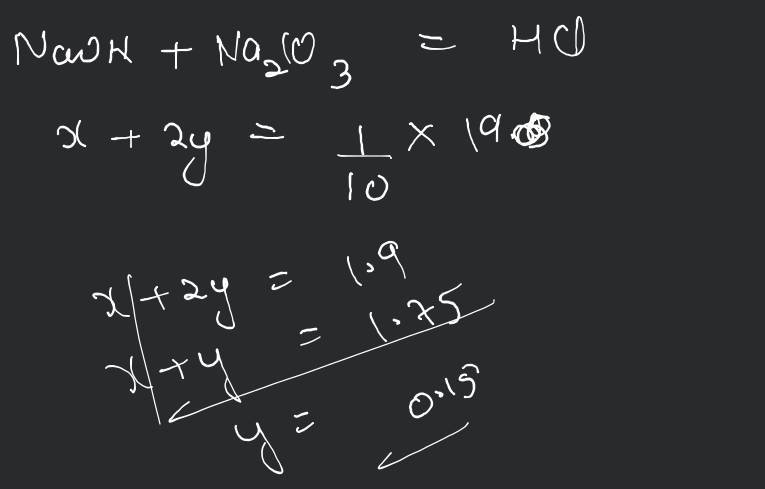 NaOH + Na₂CO₃ = HCl
x + 2y = 1/10 × 19
x + 2y = 1.9
x + y = 1.75
y = 0.15